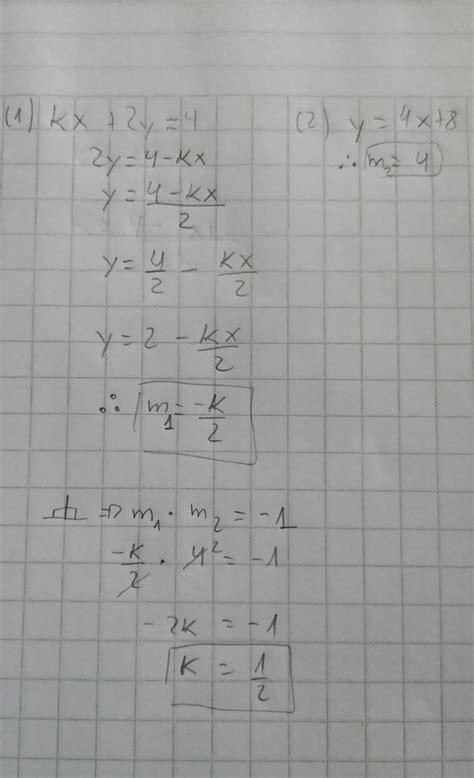 (1) kx + 2y = 4
2y = 4 - kx
y = 4 - kx / 2
y = 4/2 - kx/2
y = 2 - kx/2
∴ m₁ = -k/2
(2) y = 4x + 8
∴ m₂ = 4
⊥ ⇒ m₁ · m₂ = -1
-k/2 · 4² = -1
-2k = -1
k = 1/2